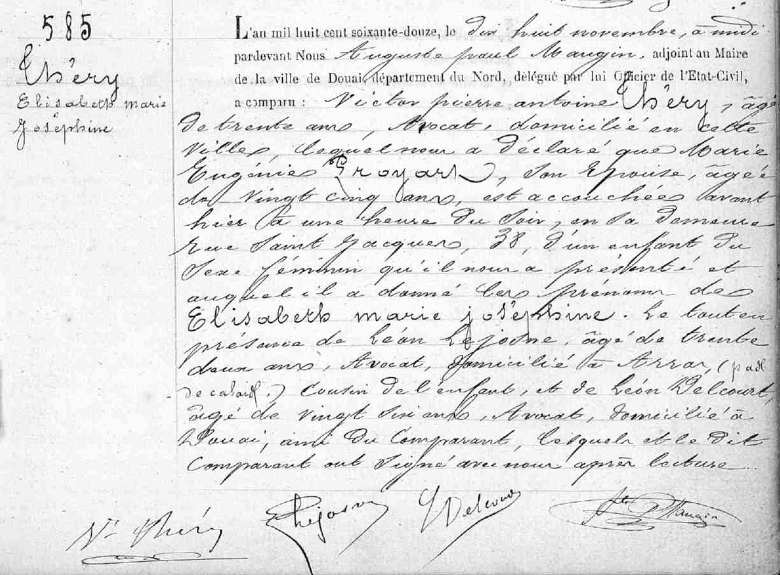 585
Théry
Elisabeth marie
Joséphine
L'an mil huit cent soixante-douze, le dix huit novembre, à midi
pardevant Nous Auguste paul Maugin, adjoint au Maire
de la ville de Douai, département du Nord, délégué par lui Officier de l'Etat-Civil,
a comparu : Victor pierre antoine Théry, âgé
de trente ans, Avocat, domicilié en cette
Ville, lequel nous a déclaré que Marie
Eugénie Proyart, son Epouse, âgée
de Vingt cinq ans, est accouchée avant
hier à une heure du Soir, en sa demeure
Rue Saint Jacques, 38, d'un enfant du
Sexe féminin qu'il nous a présenté et
auquel il a donné les prénoms de
Elisabeth marie joséphine. Le tout en
présence de Léon Lejosne, âgé de trente
deux ans, Avocat, domicilié à Arras, (pas
de calais.) Cousin de l'enfant, et de Léon Delcourt,
âgé de Vingt six ans, Avocat, domicilié à
Douai, ami du Comparant, lesquels et le dit
Comparant ont signé avec nous après lecture
Vr Théry Lejosne L Delcourt Maugin